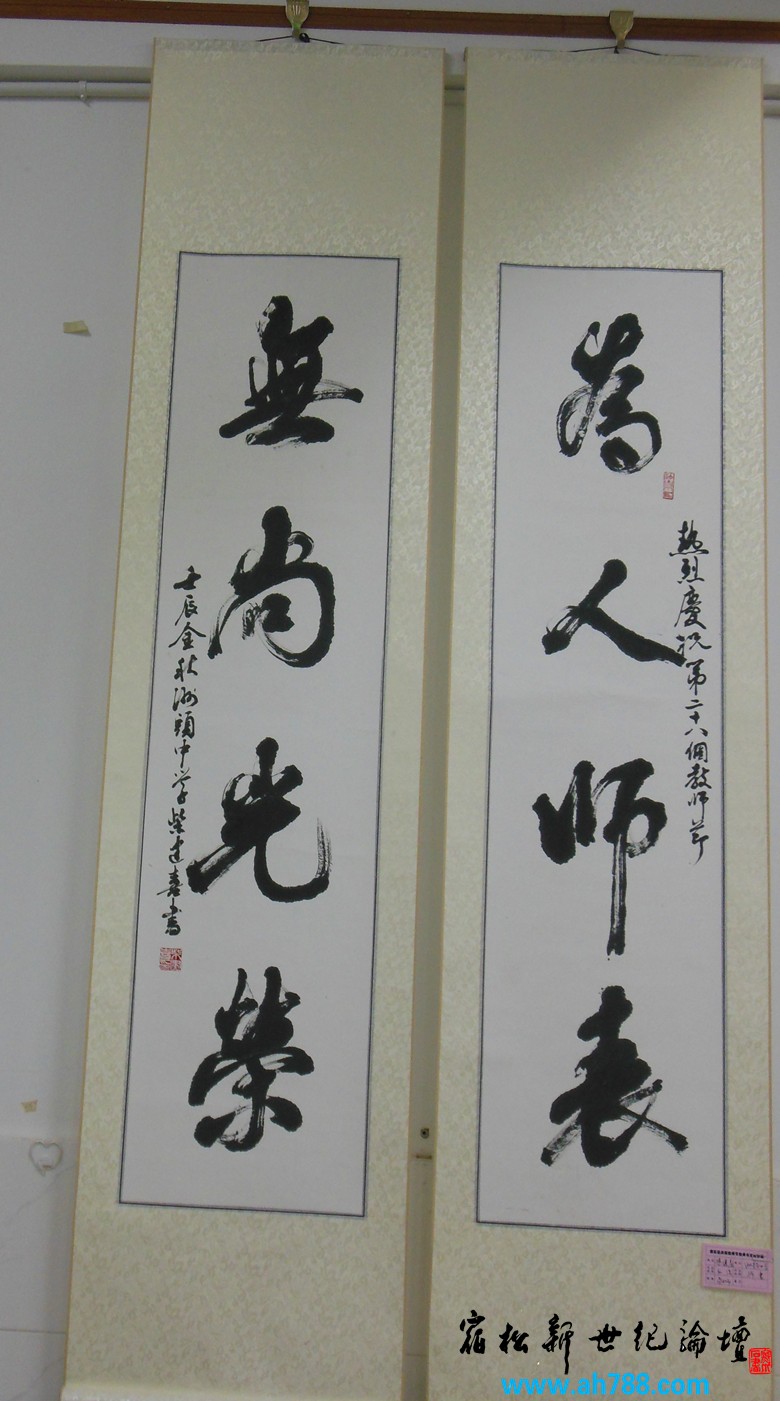 為人师表
熱烈慶祝第二十八個教师节
無尚光榮
壬辰金秋洲頭中学柴建喜書
宿松新世纪論壇
www.ah788.com